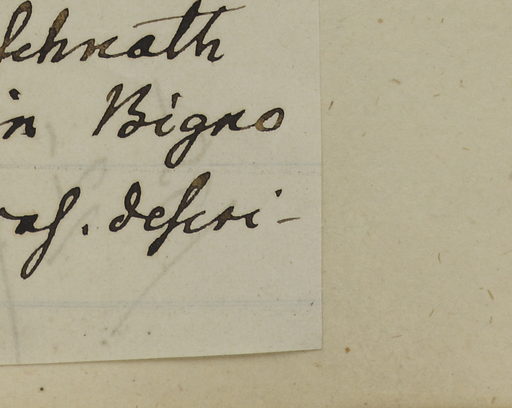 schnath
in Bigno
raſ. deſcri-